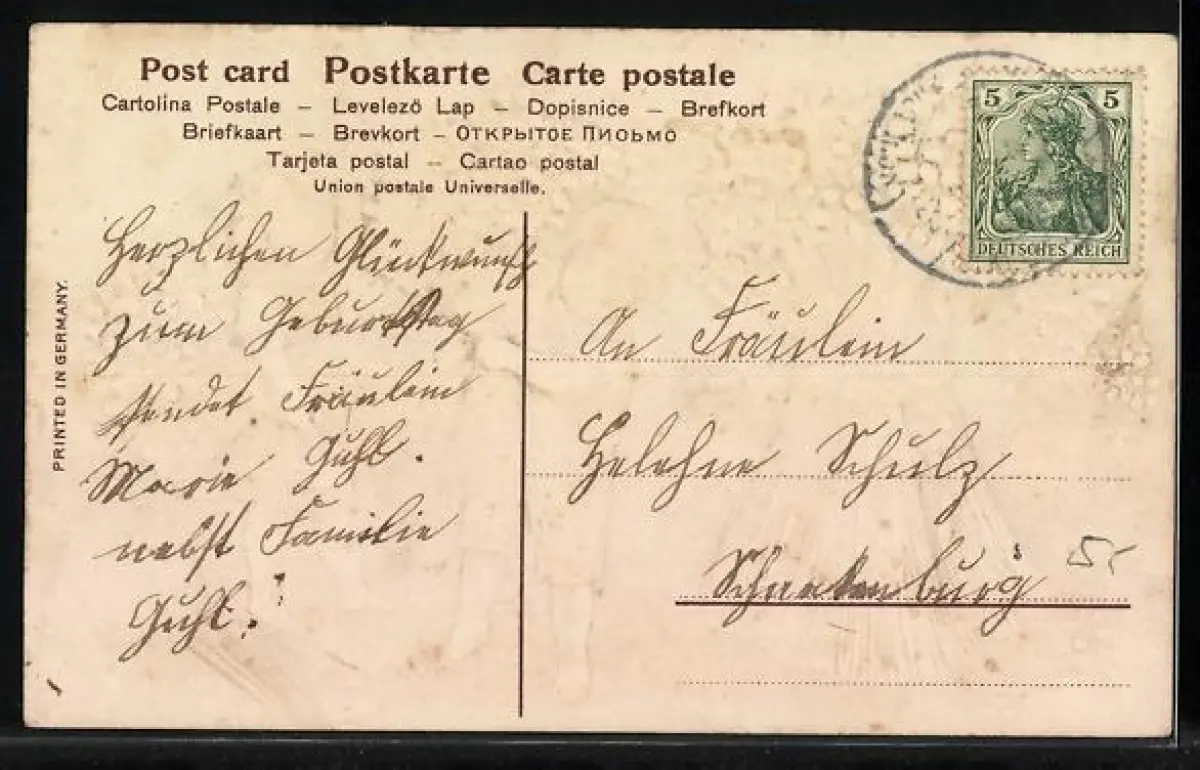 Post card Postkarte Carte postale
Cartolina Postale – Levelező Lap – Dopisnice – Brefkort
Briefkaart – Brevkort – ОТКРЫТОЕ ПИСЬМО
Tarjeta postal – Cartao postal
Union postale Universelle.
PRINTED IN GERMANY.
5 5
DEUTSCHES REICH
Herzlichen Glückwunsch
zum Geburtstag
sendet Fräulein
Marie Guhl.
nebst Familie
Guhl.
An Fräulein
Helehne Schulz
Schnakenburg
5-